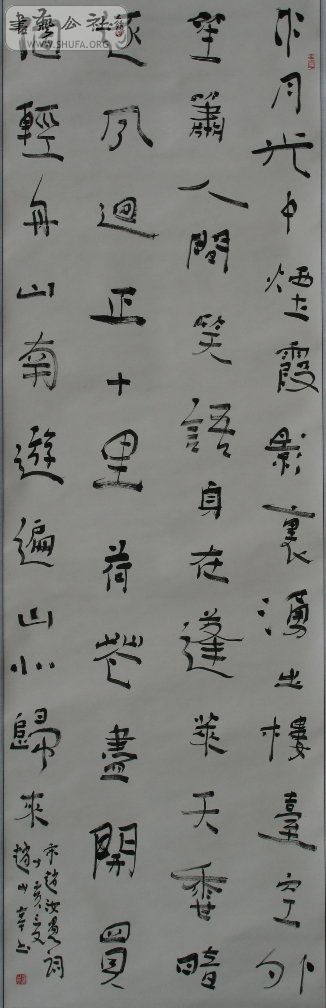 書藝公社
WWW.SHUFA.ORG
水月光中煙霞影裏湧出樓臺空外
笙簫人間笑語身在蓬萊天香暗
逐風迴正十里荷花盡開買
個輕舟山南遊遍山北歸來
宋趙汝愚詞